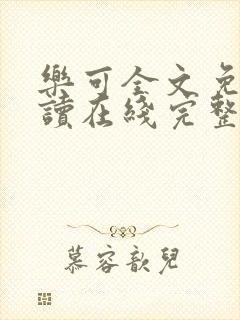 樂可全文免
讀在綫完整
慕容歆兒